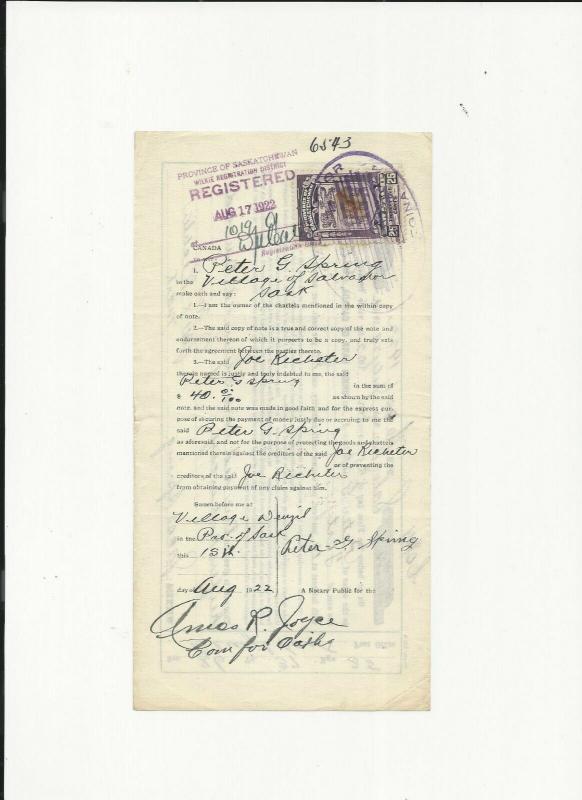 6543
PROVINCE OF SASKATCHEWAN
WILKIE REGISTRATION DISTRICT
REGISTERED
AUG 17 1922
25
25
1019
CANADA
Registration
I, Peter G. Spring
in the Village of Salvador
make oath and say: Sask
1.—I am the owner of the chattels mentioned in the within copy
of note.
2.—The said copy of note is a true and correct copy of the note and
endorsement thereon of which it purports to be a copy, and truly sets
forth the agreement between the parties thereto.
3.—The said Joe Richeter
therein named is justly and truly indebted to me, the said
Peter G Spring in the sum of
$ 40. 0/100 as shown by the said
note, and the said note was made in good faith and for the express pur-
pose of securing the payment of money justly due or accruing to me the
said Peter G. Spring
as aforesaid, and not for the purpose of protecting the goods and chattels
mentioned therein against the creditors of the said Joe Richeter
or of preventing the
creditors of the said Joe Richeter
from obtaining payment of any claim against him.
Sworn before me at
Village Denzil
in the Prov. of Sask
this 15th. Peter G. Spring
day of Aug 1922 A Notary Public for the
R. Joyce
Com for Oaths